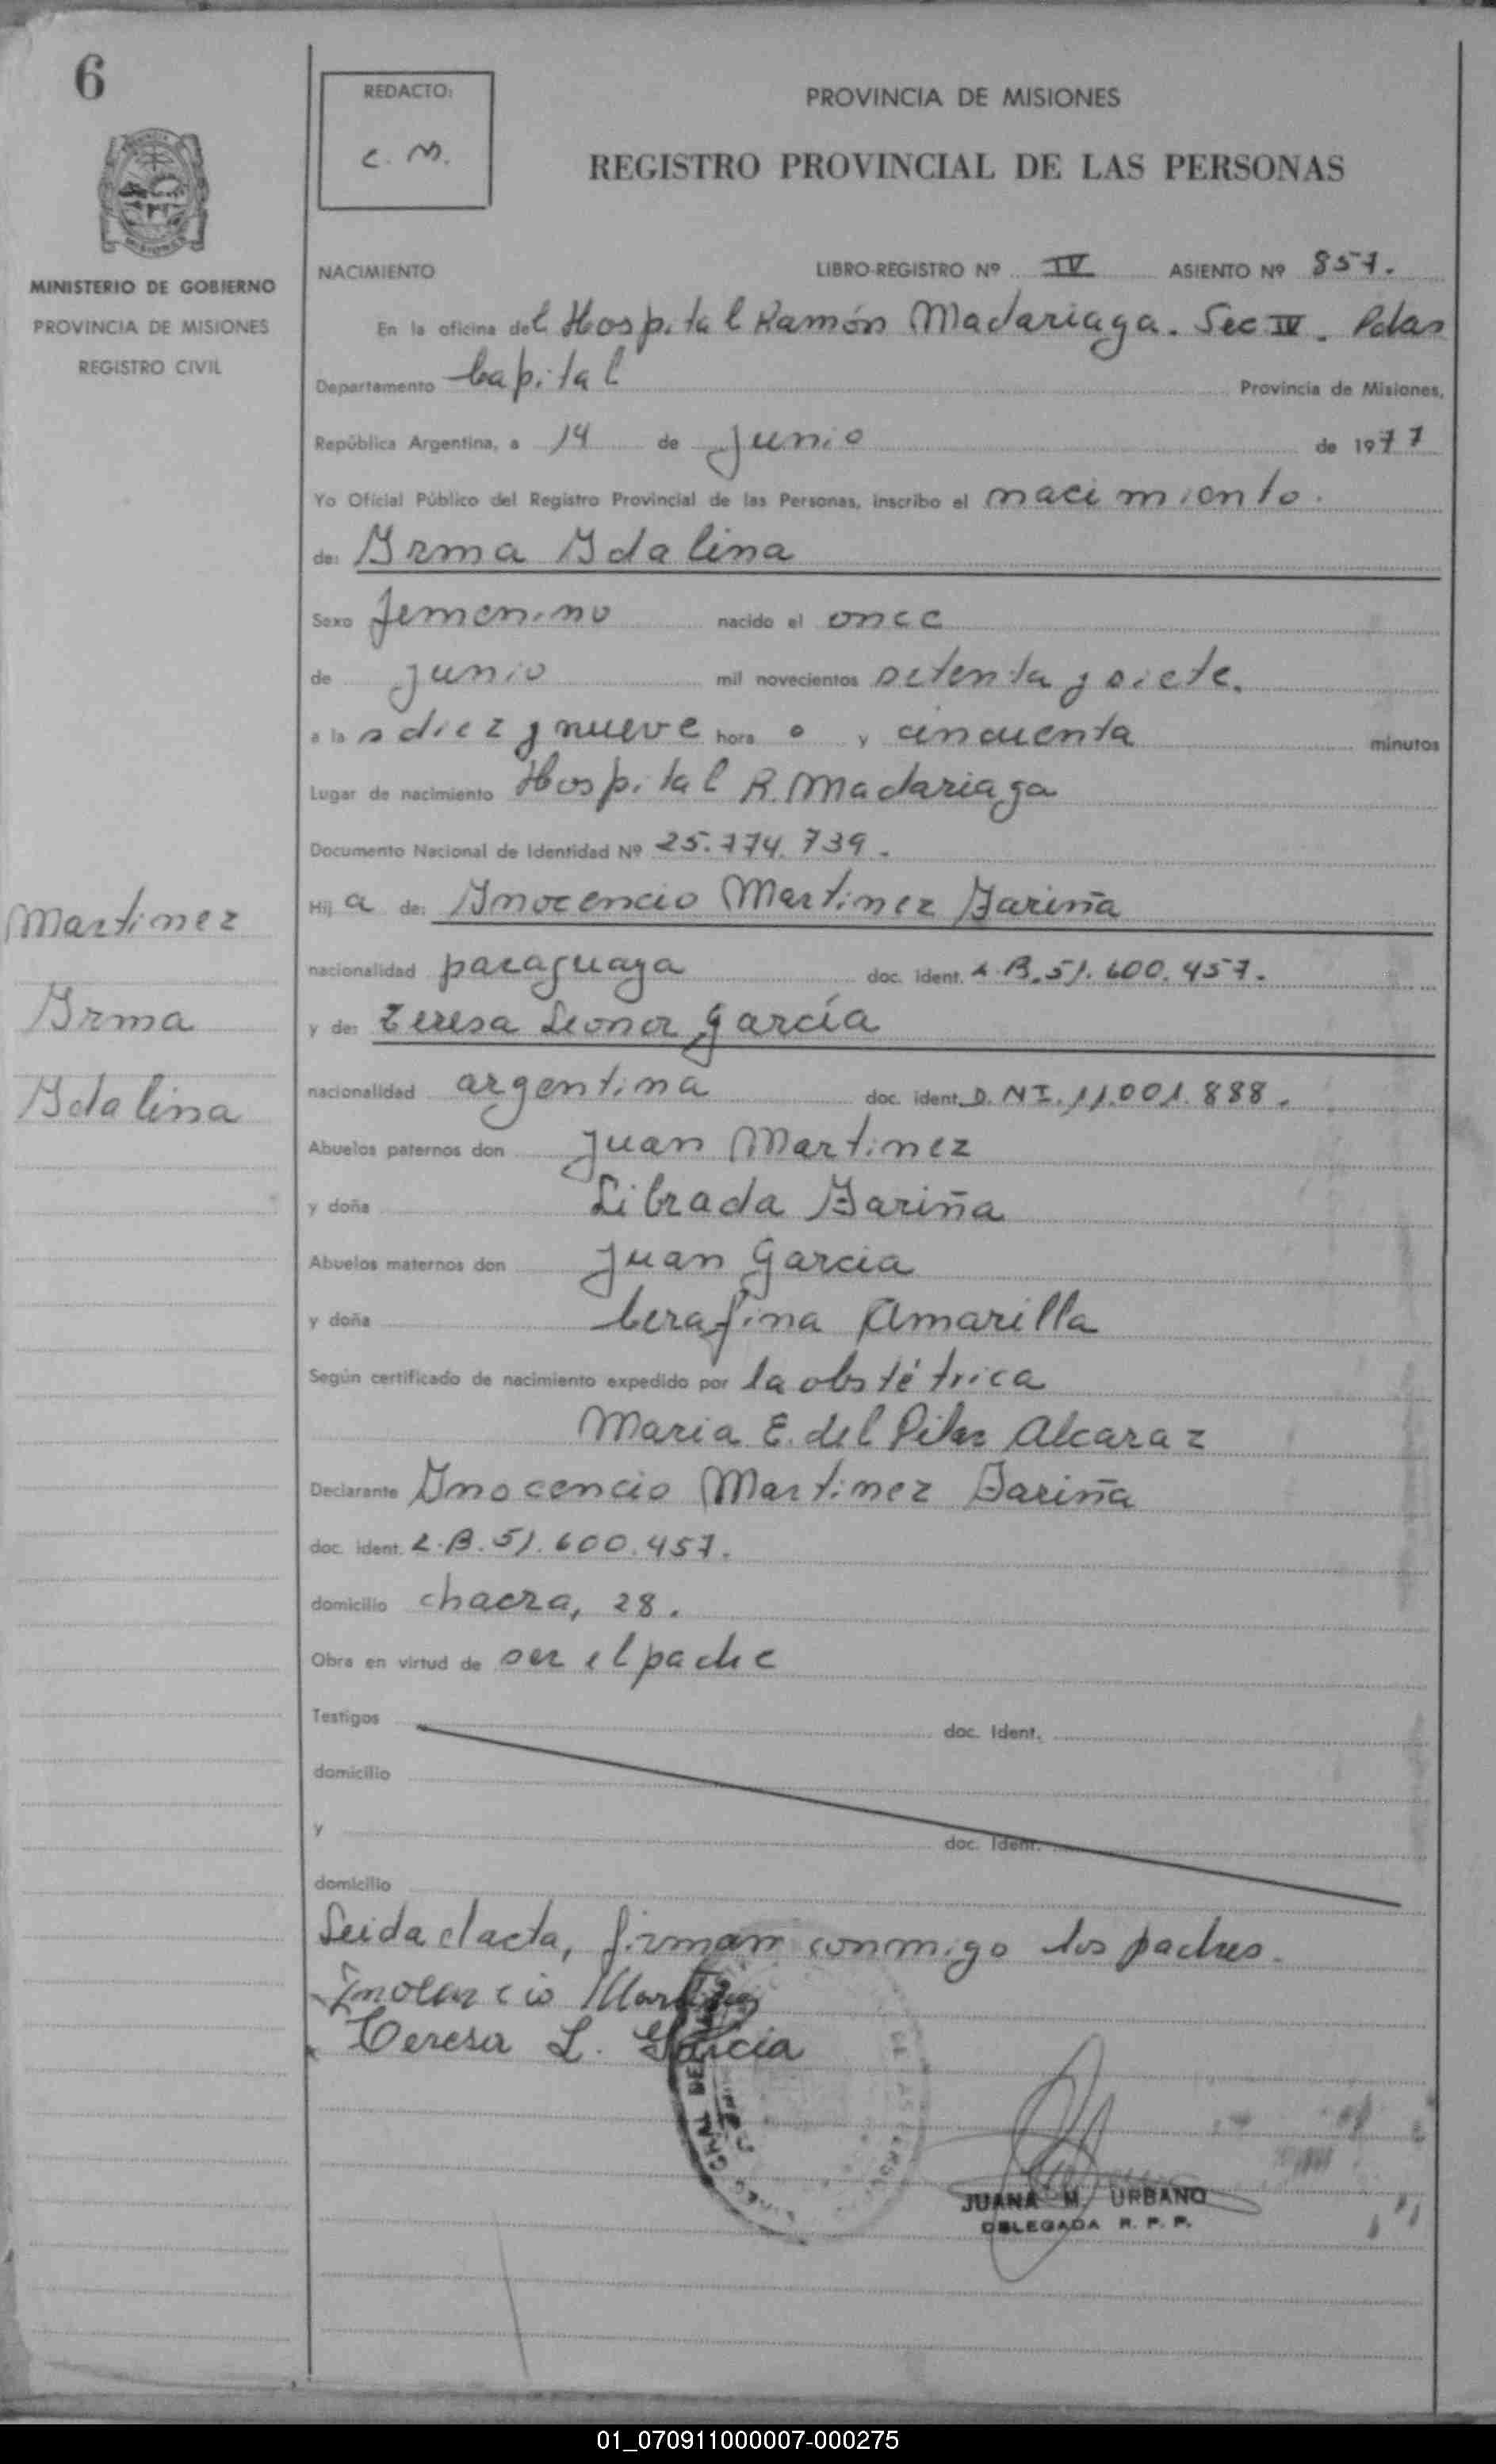 6
REDACTO:
C. M.
PROVINCIA DE MISIONES
REGISTRO PROVINCIAL DE LAS PERSONAS
MISIONES
MINISTERIO DE GOBIERNO
PROVINCIA DE MISIONES
REGISTRO CIVIL
NACIMIENTO LIBRO-REGISTRO Nº IV ASIENTO Nº 857.
En la oficina del Hospital Ramón Madariaga. Sec IV. Pdas
Departamento Capital Provincia de Misiones,
República Argentina, a 14 de Junio de 1977
Yo Oficial Público del Registro Provincial de las Personas, inscribo el nacimiento.
de: Irma Idalina
Sexo femenino nacido el once
de junio mil novecientos setenta y siete.
a la s diez y nueve hora s y cincuenta minutos
Lugar de nacimiento Hospital R. Madariaga
Documento Nacional de Identidad Nº 25.774.739.
Hij a de: Inocencio Martinez Fariña
nacionalidad paraguaya doc. ident. L.B.51.600.457.
y de: Teresa Leonor García
nacionalidad argentina doc. ident. D.NI.11.001.888.
Abuelos paternos don Juan Martinez
y doña Librada Fariña
Abuelos maternos don Juan Garcia
y doña Cerafina Amarilla
Según certificado de nacimiento expedido por la obstétrica
Maria E. del Pilar Alcaraz
Declarante Inocencio Martinez Fariña
doc. ident. L.B.51.600.457.
domicilio chacra, 28.
Obra en virtud de ser el padre
Testigos doc. Ident.
domicilio
y doc. Ident.
domicilio
Leida el acta, firman conmigo los padres.
Inocencio Martinez
Teresa L. Garcia
JUANA M. URBANO
DELEGADA R. P. P.
Martinez
Irma
Idalina
01_070911000007-000275